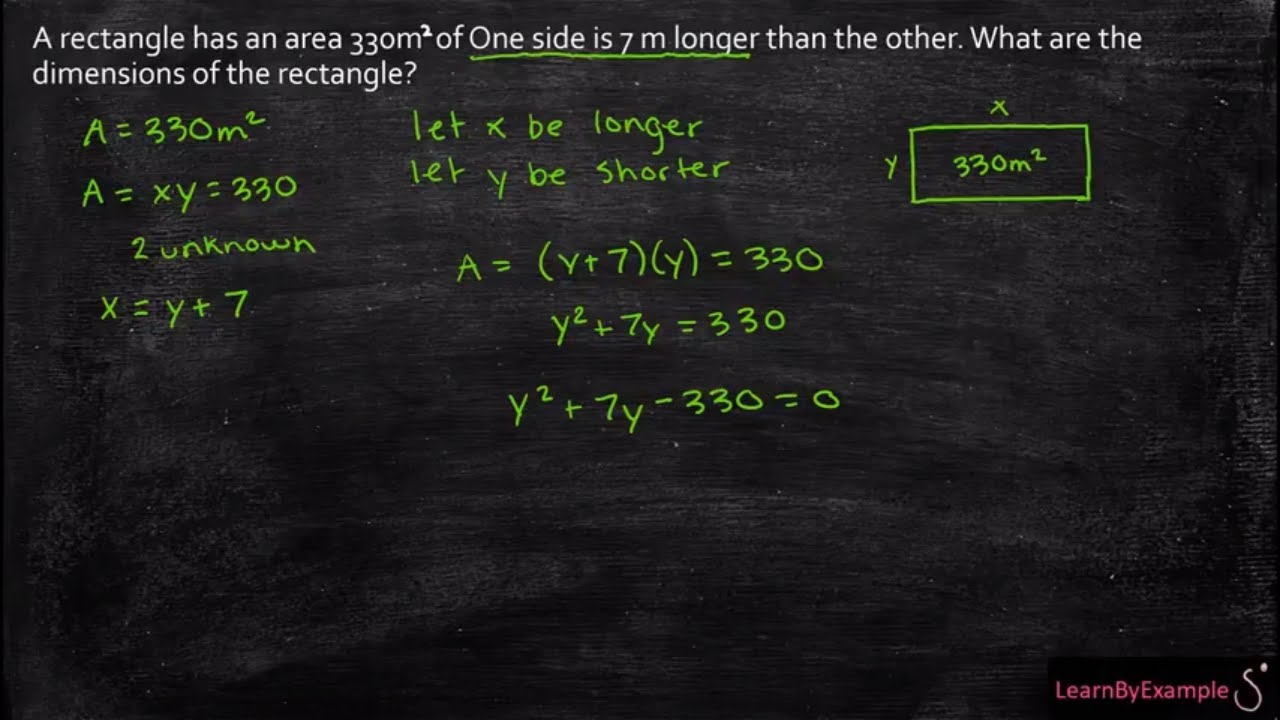 A rectangle has an area 330m² of One side is 7 m longer than the other. What are the
dimensions of the rectangle?
A = 330m²
A = xy = 330
2 unknown
x = y + 7
let x be longer
let y be shorter
A = (y+7)(y) = 330
y² + 7y = 330
y² + 7y - 330 = 0
x
y
330m²
LearnByExample